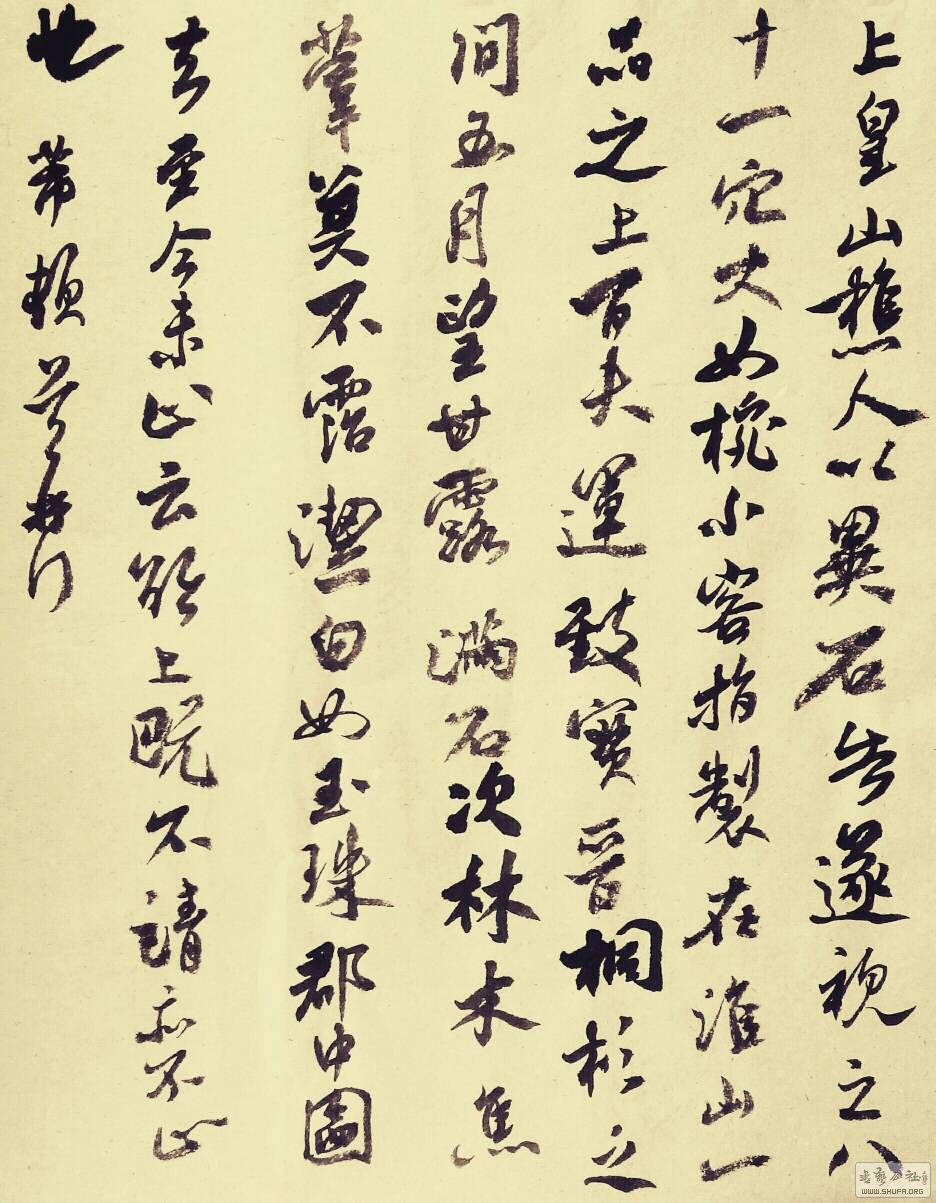 上皇山樵人以異石告遂視之八
十一穴大如椀小容指製在淮山一
品之上百夫運致寶晉桐杉之
間五月望甘露滿石次林木焦
葦莫不霑潔白如玉珠郡中圖
去至今未止云欲上既不請亦不止
也 芾頓首再拜
WWW.SHUFA.ORG